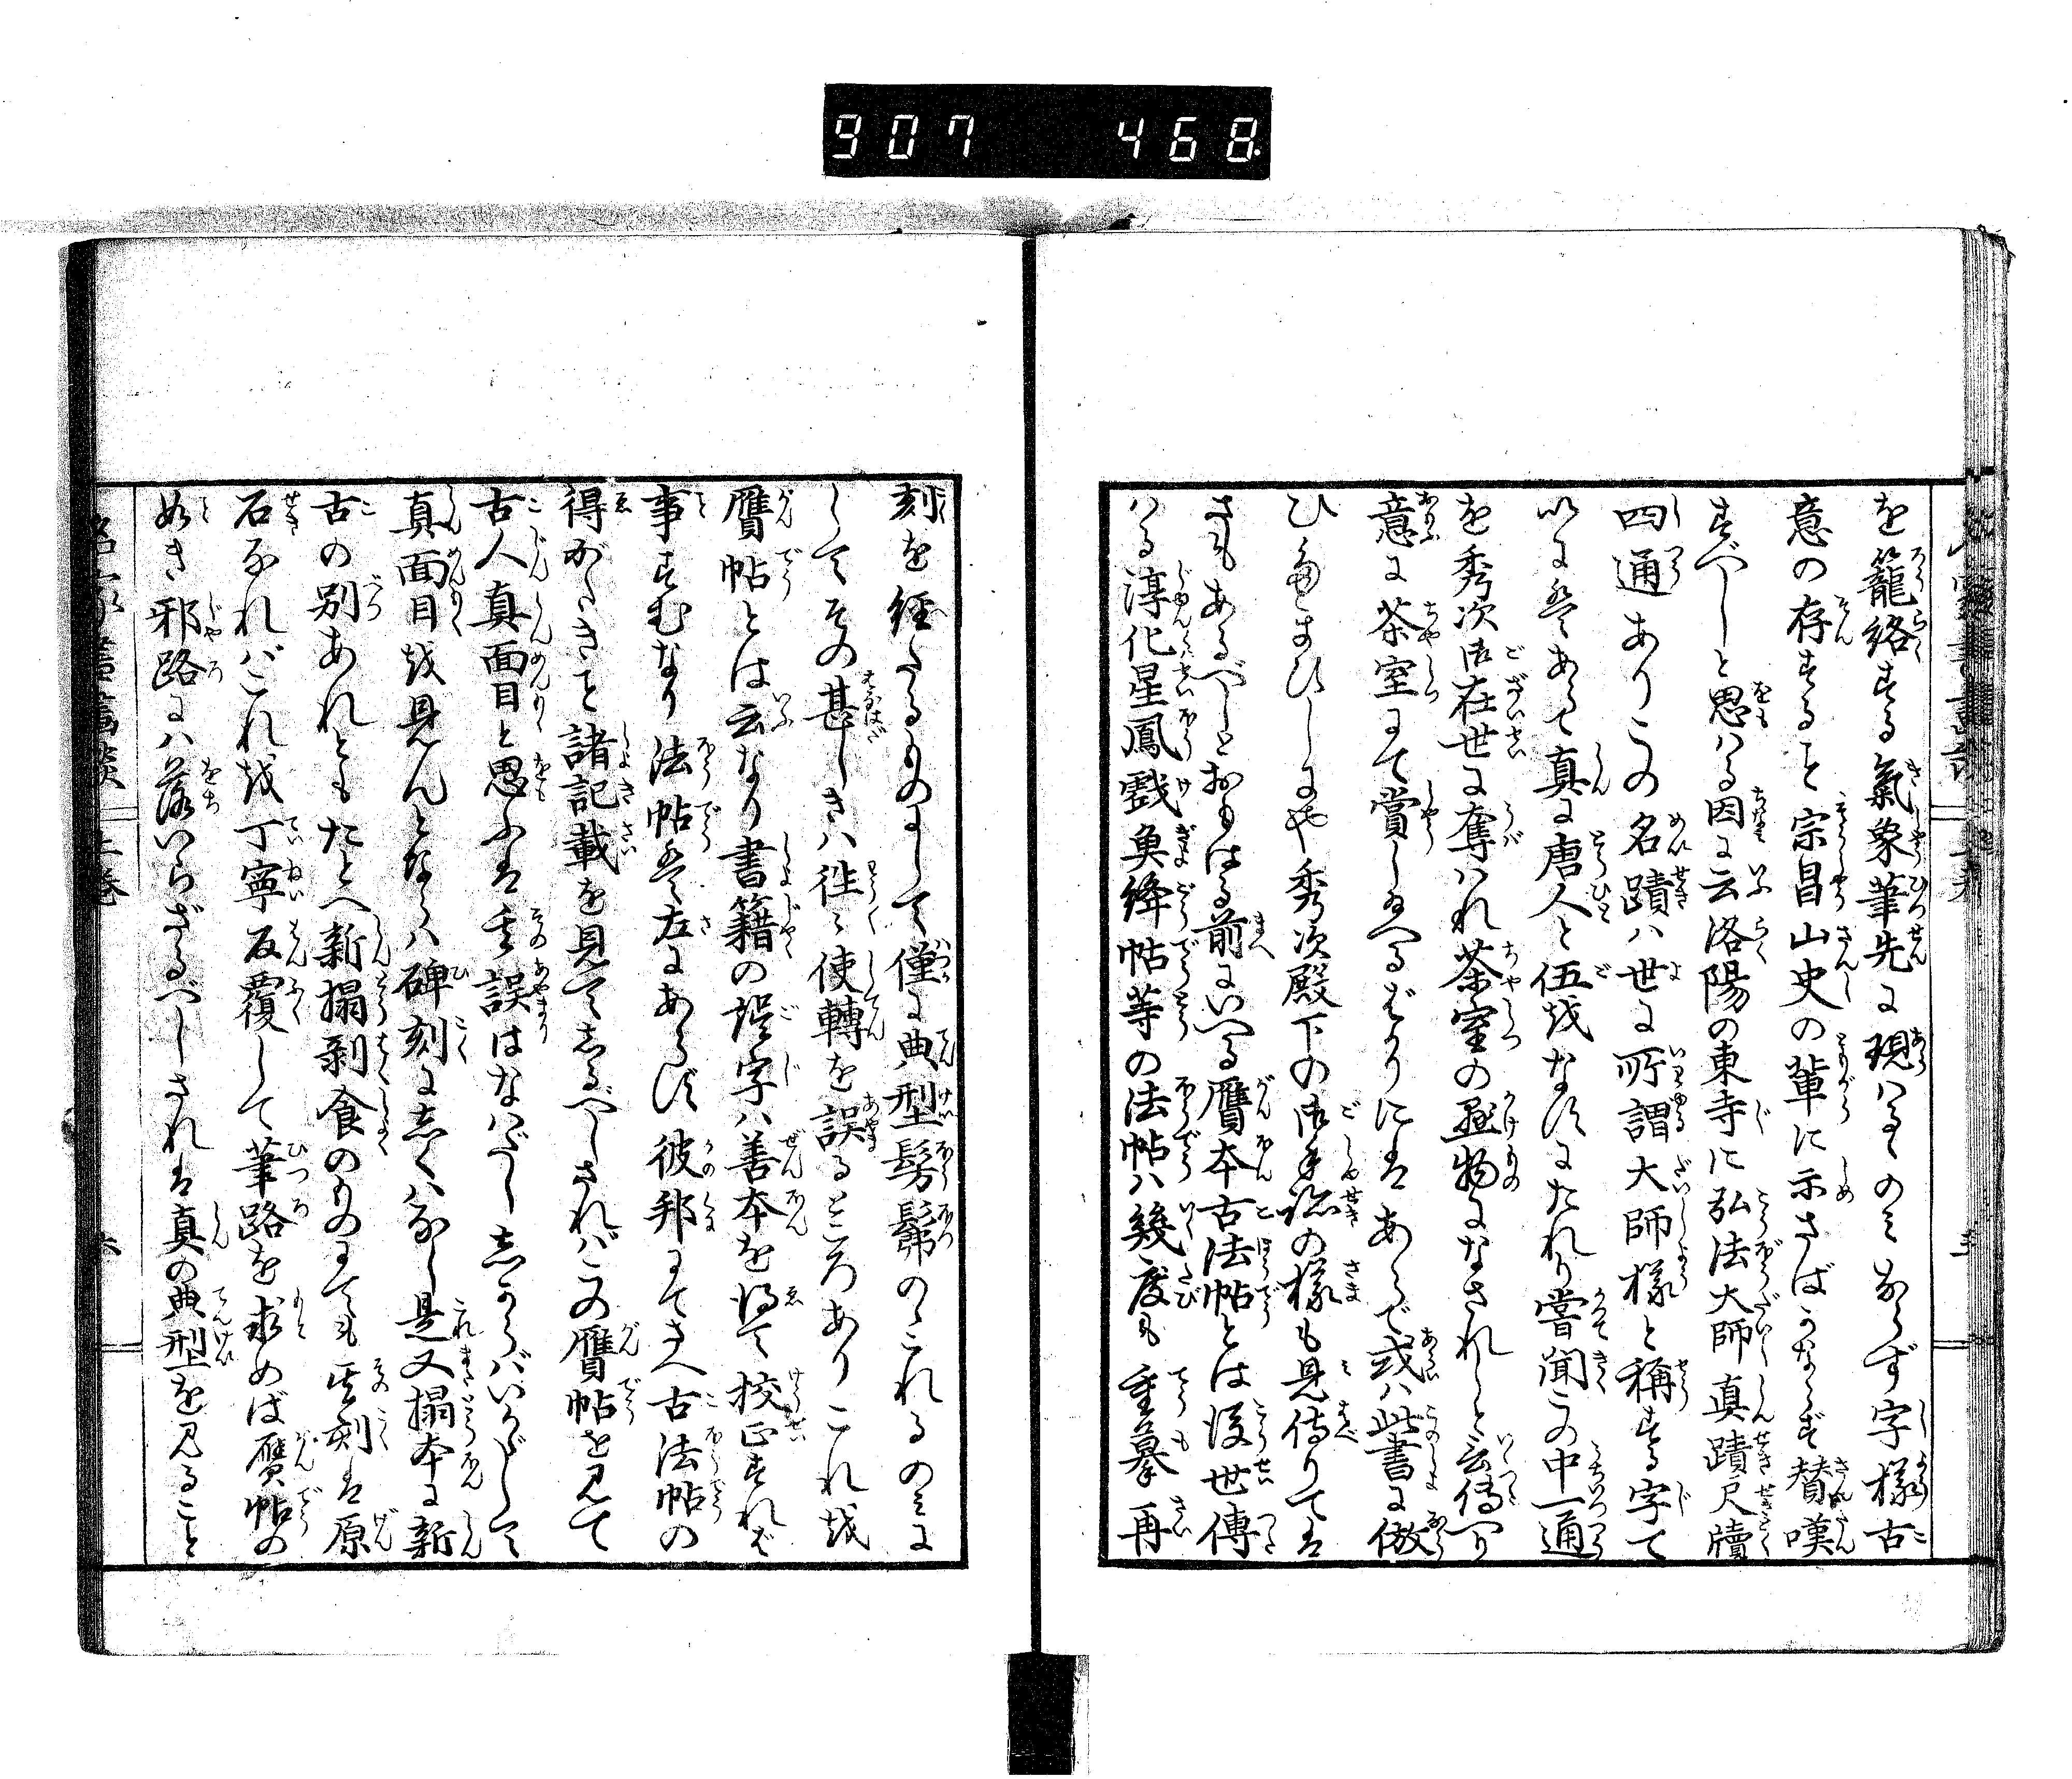 907 468
を籠絡する氣象筆先に現はるゝのみならず字様古
意の存すること宗昌山史の輩に示さばかならず賛嘆
すべしと思はる因に云洛陽の東寺に弘法大師真蹟尺牘
四通ありこの名蹟は世に所謂大師様と称する字て
いにてあらで真に唐人と伍をなすにたれり嘗聞この中一通
を秀次御在世に奪はれ茶室の懸物になされしと云傳へり
意に茶室にて賞し給へるばかりにはあらで或は此書に倣
ひ給ひしにや秀次殿下の御手跡の様も見侍りては
さもあるべしとおもはる前にいへる贋本古法帖とは後世傳
はる淳化星鳳戲魚絳帖等の法帖は幾度も重摹再
刻を經たるものにして僅に典型髣髴のこれるのみに
してその甚しきは往々使轉を誤るところありこれを
贋帖とは云なり書籍の誤字は善本を得て校正すれば
事すむなり法帖は左にあらず彼邦にてさへ古法帖の
得がたきこと諸記載を見てしるべしさればこの贋帖を見て
古人真面目と思ふは其誤はなはだし志からばいかゞして
真面目を見んとならは碑刻に志くはなし是又搨本に新
古の別あれともたとへ新搨剥食のものにても其刻は原
石なればこれを丁寧反覆して筆路を求めば贋帖の
如き邪路には落いらざるべしされは真の典型を見ること